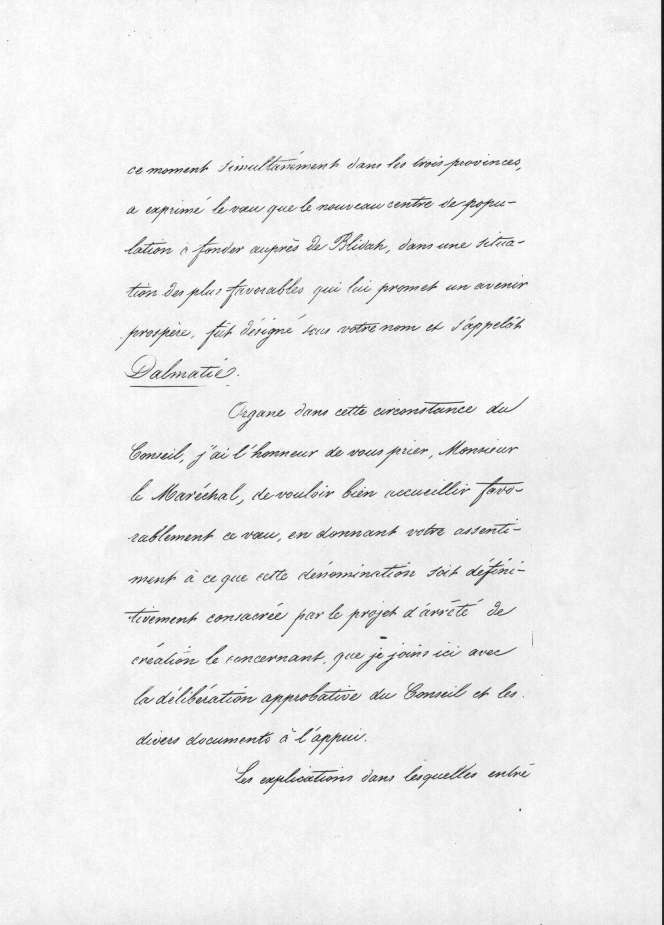 ce moment simultanément dans les trois provinces,
a exprimé le vœu que le nouveau centre de popu-
lation à fonder auprès de Blidah, dans une situa-
tion des plus favorables qui lui promet un avenir
prospère, fut désigné sous votre nom et s'appelât
Dalmatie.
Organe dans cette circonstance du
Conseil, j'ai l'honneur de vous prier, Monsieur
le Maréchal, de vouloir bien accueillir favo-
rablement ce vœu, en donnant votre assenti-
ment à ce que cette dénomination soit défini-
tivement consacrée par le projet d'arrêté de
création le concernant, que je joins ici avec
la délibération approbative du Conseil et les
divers documents à l'appui.
Les explications dans lesquelles entre